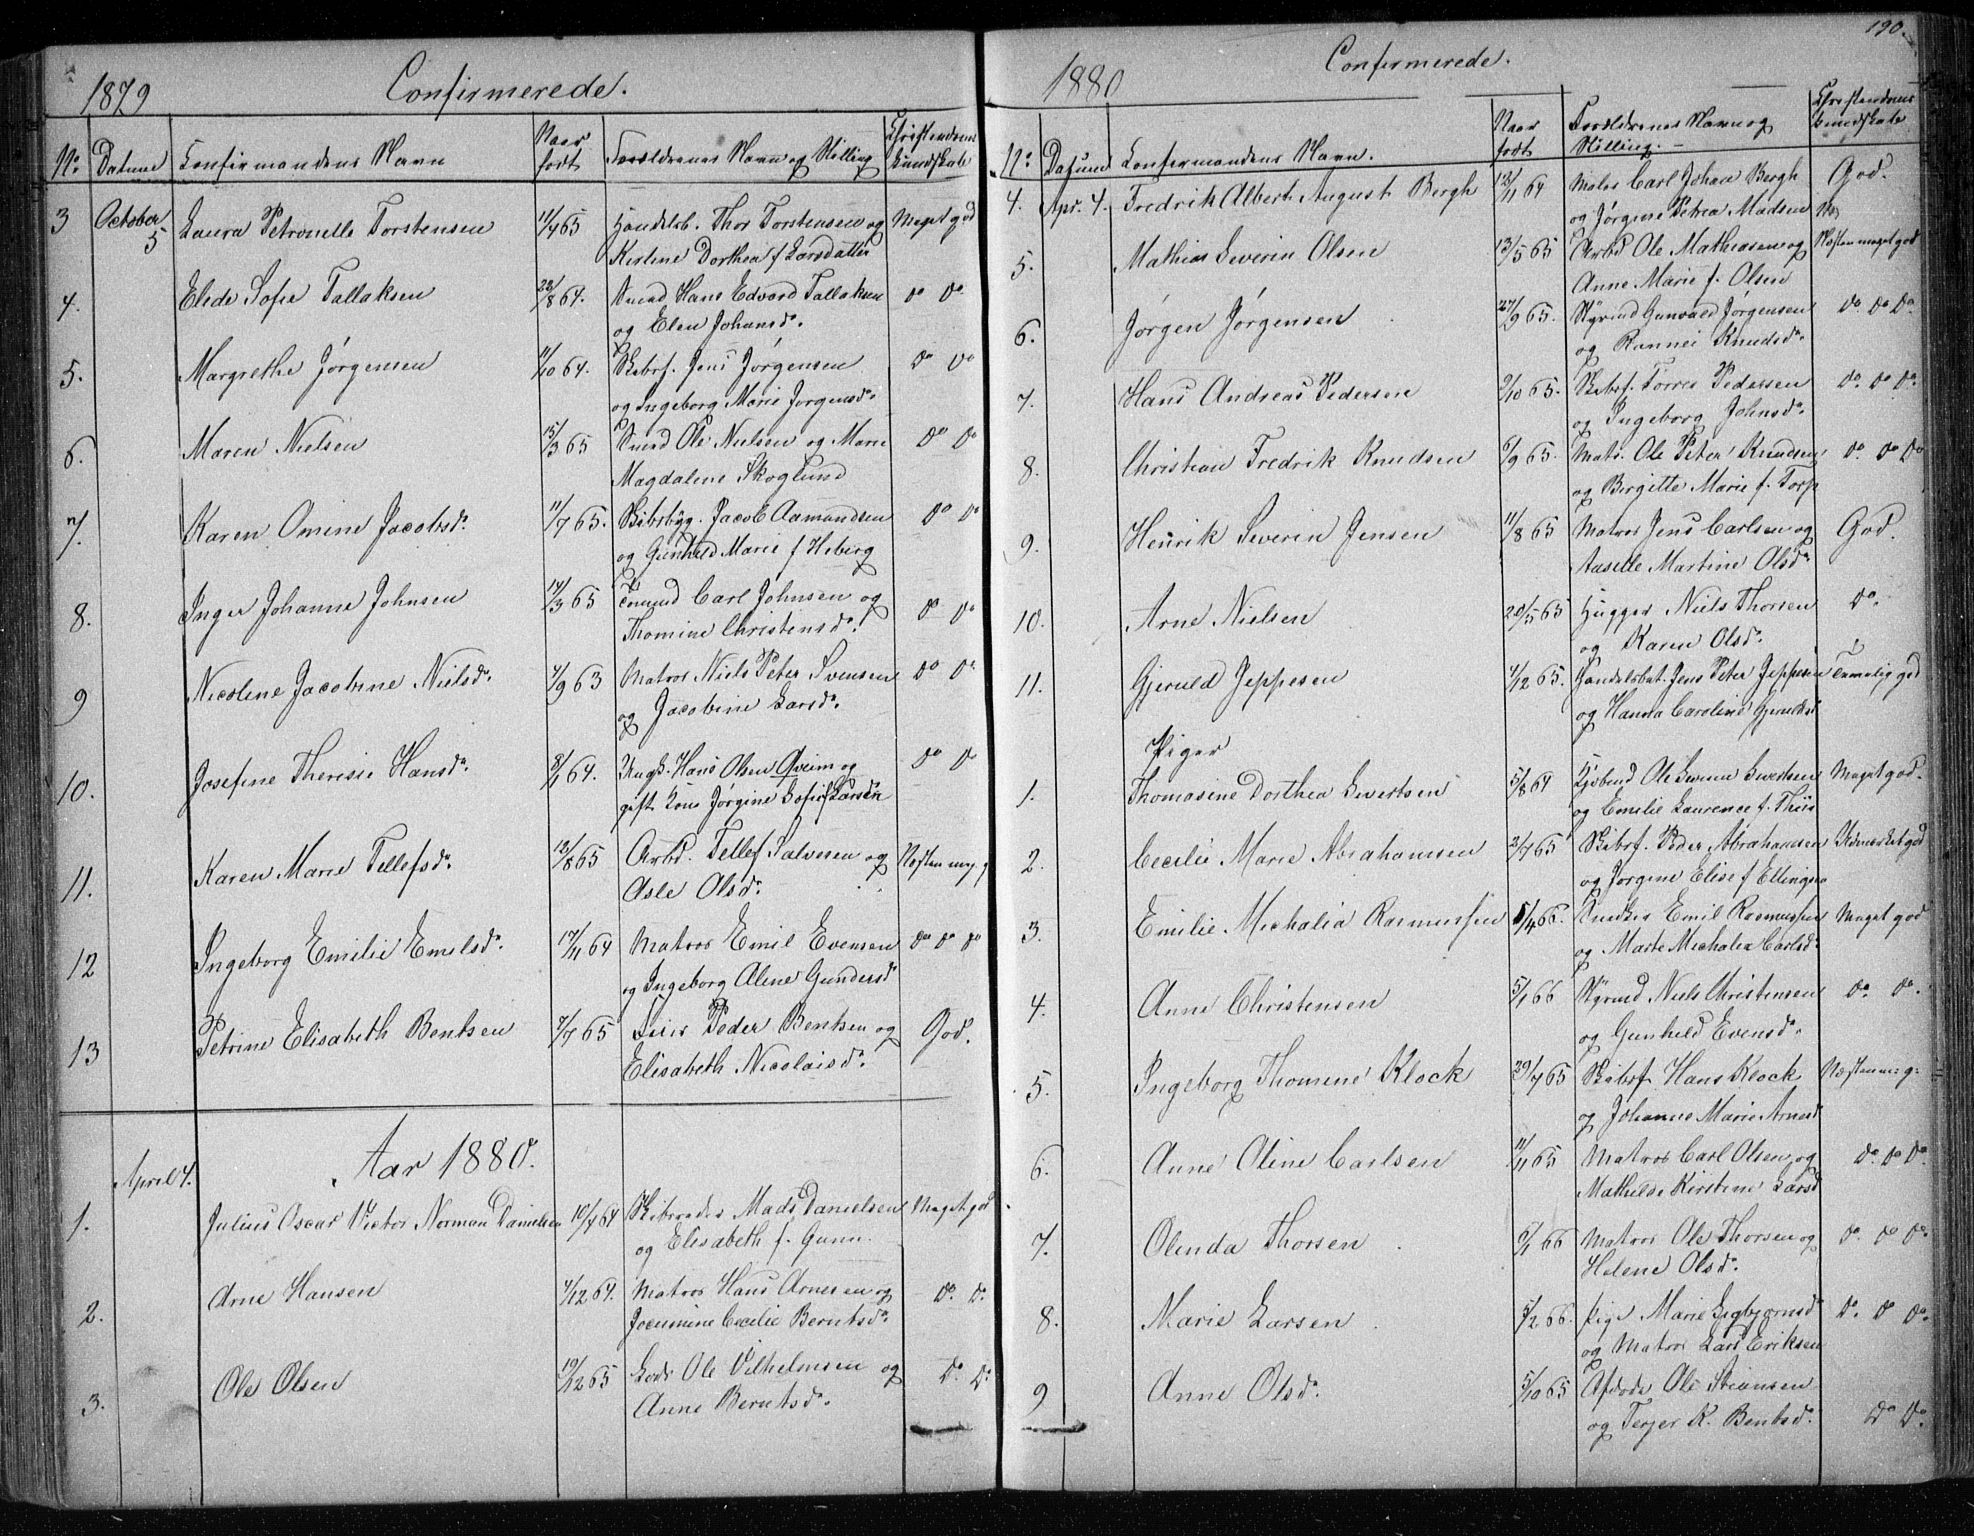 1879 Confirmerede.
No Datum Confirmandens Navn Naar født Forældrenes Navn og Stilling Christendoms Kundskab
3 October 5 Laura Petronelle Torstensen 11/4 65 Handelsb. Thor Torstensen og Meget god
Kirstine Dorthea f Larsdatter
4. Elede Sofie Tallaksen 28/8 64. Smed Hans Edvard Tallaksen do do
og Elen Johansd.
5. Margrethe Jørgensen 11/10 64. Skibsf. Jens Jørgensen do do
og Ingeborg Marie Jørgensd.
6. Maren Nielsen 15/3 65 Smed Ole Nielsen og Maren do do
Magdalene Skoglund
7. Karen Omine Jacobsd. 11/7 65. Skibsbyg. Jacob Aamundsen do do
og Gunhild Marie f Heberg
8. Inger Johanne Johnsen 14/3 65 Tømmd Carl Johnsen og do do
Thomine Christensd.
9 Nicoline Jacobine Nielsd. 4/9 63 Matros Niels Peter Svensen do do
og Jacobine Larsd.
10. Josefine Theresie Hansd. 8/1 64. Ungk. Hans Olsen Qveim og do do
gift Kone Jørgine Sofie Larsen
11. Karen Marie Tellefsd. 12/8 65 Arbd. Tellef Salvesen og Næsten meg. g
Asle Olsd.
12 Ingeborg Emilie Emilsd. 17/11 64 Matros Emil Evensen do do do
og Ingeborg Alene Gundersd
13 Petrine Elisabeth Bentsen 7/7 65 Peder Bentsen og God.
Elisabeth Nicolaisd.
Aar 1880.
April 4.
1. Julius Oscar Victor Norman Danielsen 10/4 64 Skibsreder Mads Danielsen Meget god
og Elisabeth f. Gunn.
2. Arne Hansen 4/12 64. Matros Hans Arnesen og do. do.
Jocumine Cecilie Berntsd.
3. Ole Olsen 19/12 65 Lods Ole Vilhelmsen og do. do.
Anne Berntsd.
190.
1880 Confirmerede.
No Datum Confirmandens Navn. Naar født Forældrenes Navn og Stilling. Christendoms kundskab
4. Apr. 4. Fredrik Albert August Bergh 12/11 64 Maler Carl Johan Bergh God.
og Jørgine Petrea Madsen
5. Mathias Severin Olsen 13/5 65 Arbd Ole Mathiasen og Næsten meget god
Anne Marie f. Olsen
6. Jørgen Jørgensen 27/9 65. Styrmd Gunvald Jørgensen do do do.
og Rannei Knudsd.
7. Hans Andreas Pedersen 2/10 65. Skibsf. Torres Pedersen do. do do.
og Ingeborg Johnsd.
8. Christian Fredrik Knudsen 6/9 65. Mats. Ole Peter Knudsen do. do do
og Birgitte Marie f. Torp
9. Henrik Severin Jensen 11/8 65 Matros Jens Carlsen og God.
Aaselle Martine Olsd.
10. Arne Nielsen 20/5 65 Hugger Niels Thorsen do.
og Karen Olsd.
11. Gjeruld Jeppesen 4/12 65. Handelsbet. Jens Peter Jeppesen Temelig god
og Hanna Caroline Gjeruldsd
Piger
1. Thomasine Dorthea Sivertsen 5/8 64 Kjøbmd Ole Sivertsen Meget god.
og Emilie Laurence f. Thiis
2. Cecilie Marie Abrahamsen 2/7 65 Skibsf. Peder Abrahamsen Udmerket god
og Jørgine Elise f Ellingsen
3. Emilie Michalia Rasmussen 5/4 66. Snedker Emil Rasmussen Meget god
og Marte Michalia Carlsd.
4. Anne Christensen 5/1 66 Styrmd Niels Christensen do. do.
og Gunhild Evensd.
5. Ingeborg Thomine Klock 29/7 65 Skibsf. Hans Klock Næsten m. g.
og Johanne Marie Arnesd
6. Anne Oline Carlsen 11/11 65 Matros Carl Olsen og do. do do
Mathilde Kirstine Larsd
7. Olinda Thorsen 6/1 66 Matros Ole Thorsen og do. do do.
Helene Olsd.
8. Marie Larsen 5/2 66. pige Marie Sigbjørnsd do. do do.
og Matros Lars Eriksen
9 Anne Olsd. 5/10 65 Afdøde Ole Steansen
og Terjer K. Bentsd. do do.